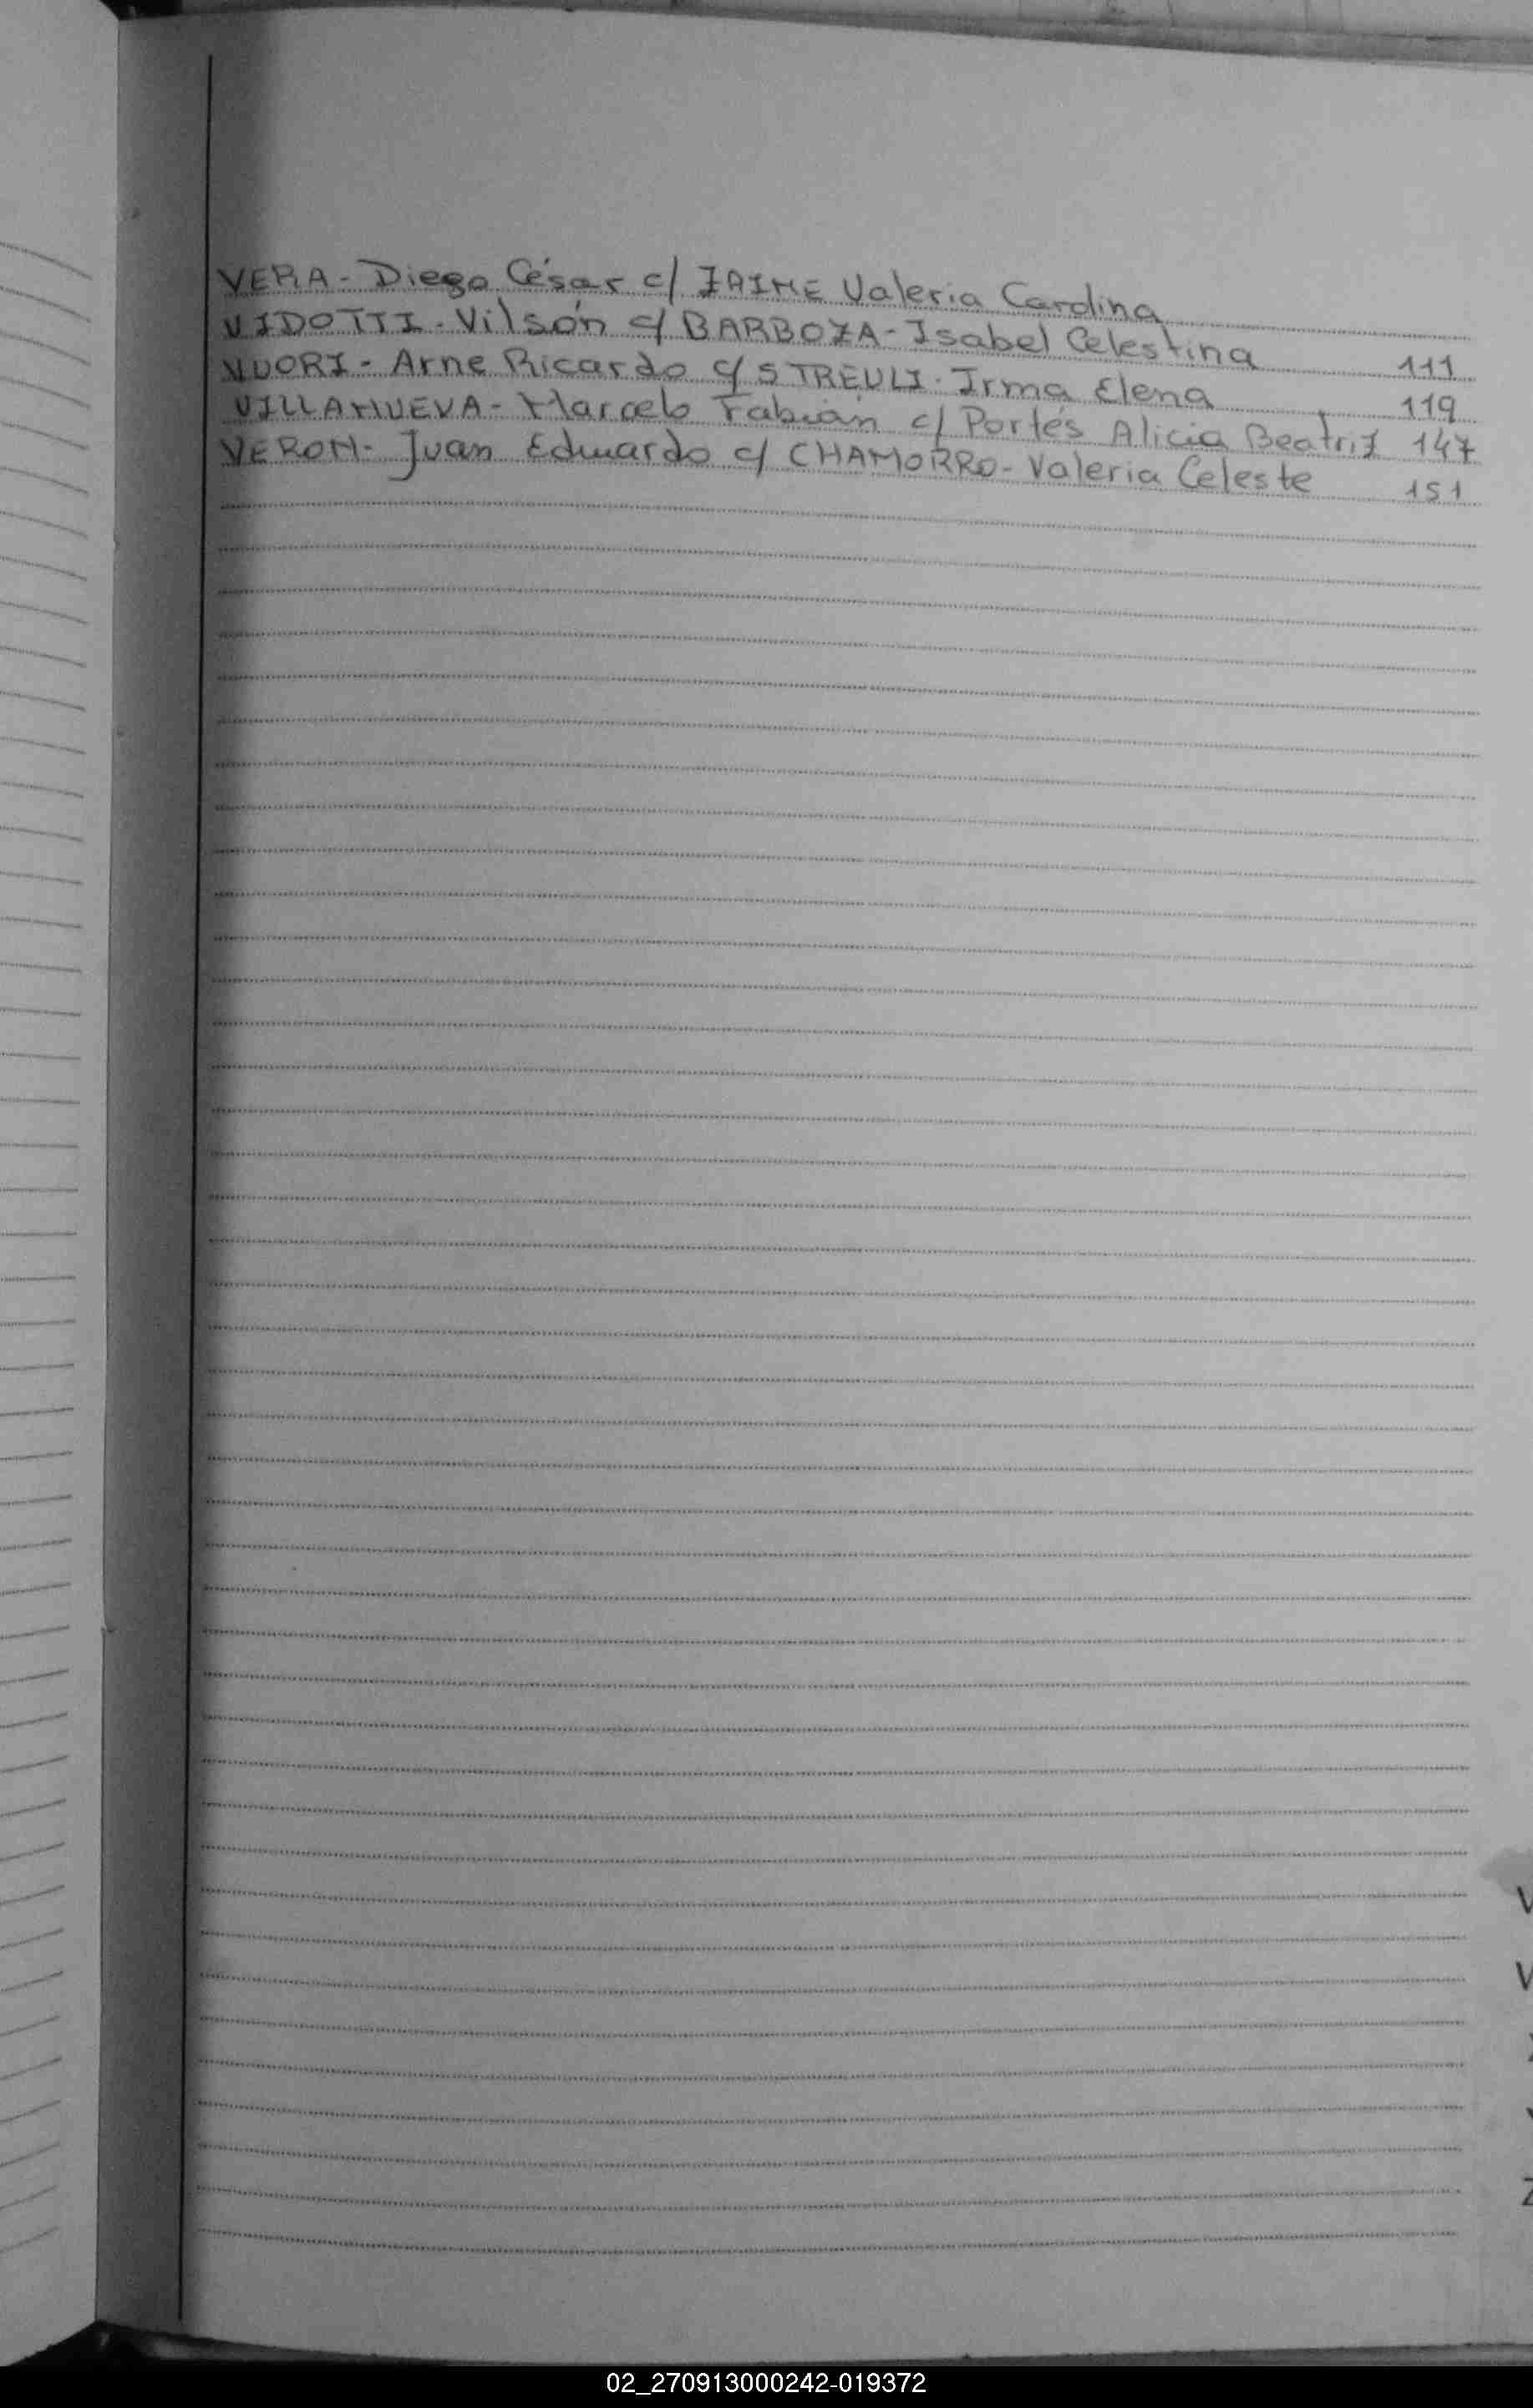 VERA - Diego César c/ JAIME Valeria Carolina
VIDOTTI - Vilsón c/ BARBOZA - Isabel Celestina 111
VUORI - Arne Ricardo c/ STREULI - Irma Elena 119
VILLANUEVA - Marcelo Fabián c/ Portés Alicia Beatriz 147
VERON - Juan Eduardo c/ CHAMORRO - Valeria Celeste 151
V
02_270913000242-019372